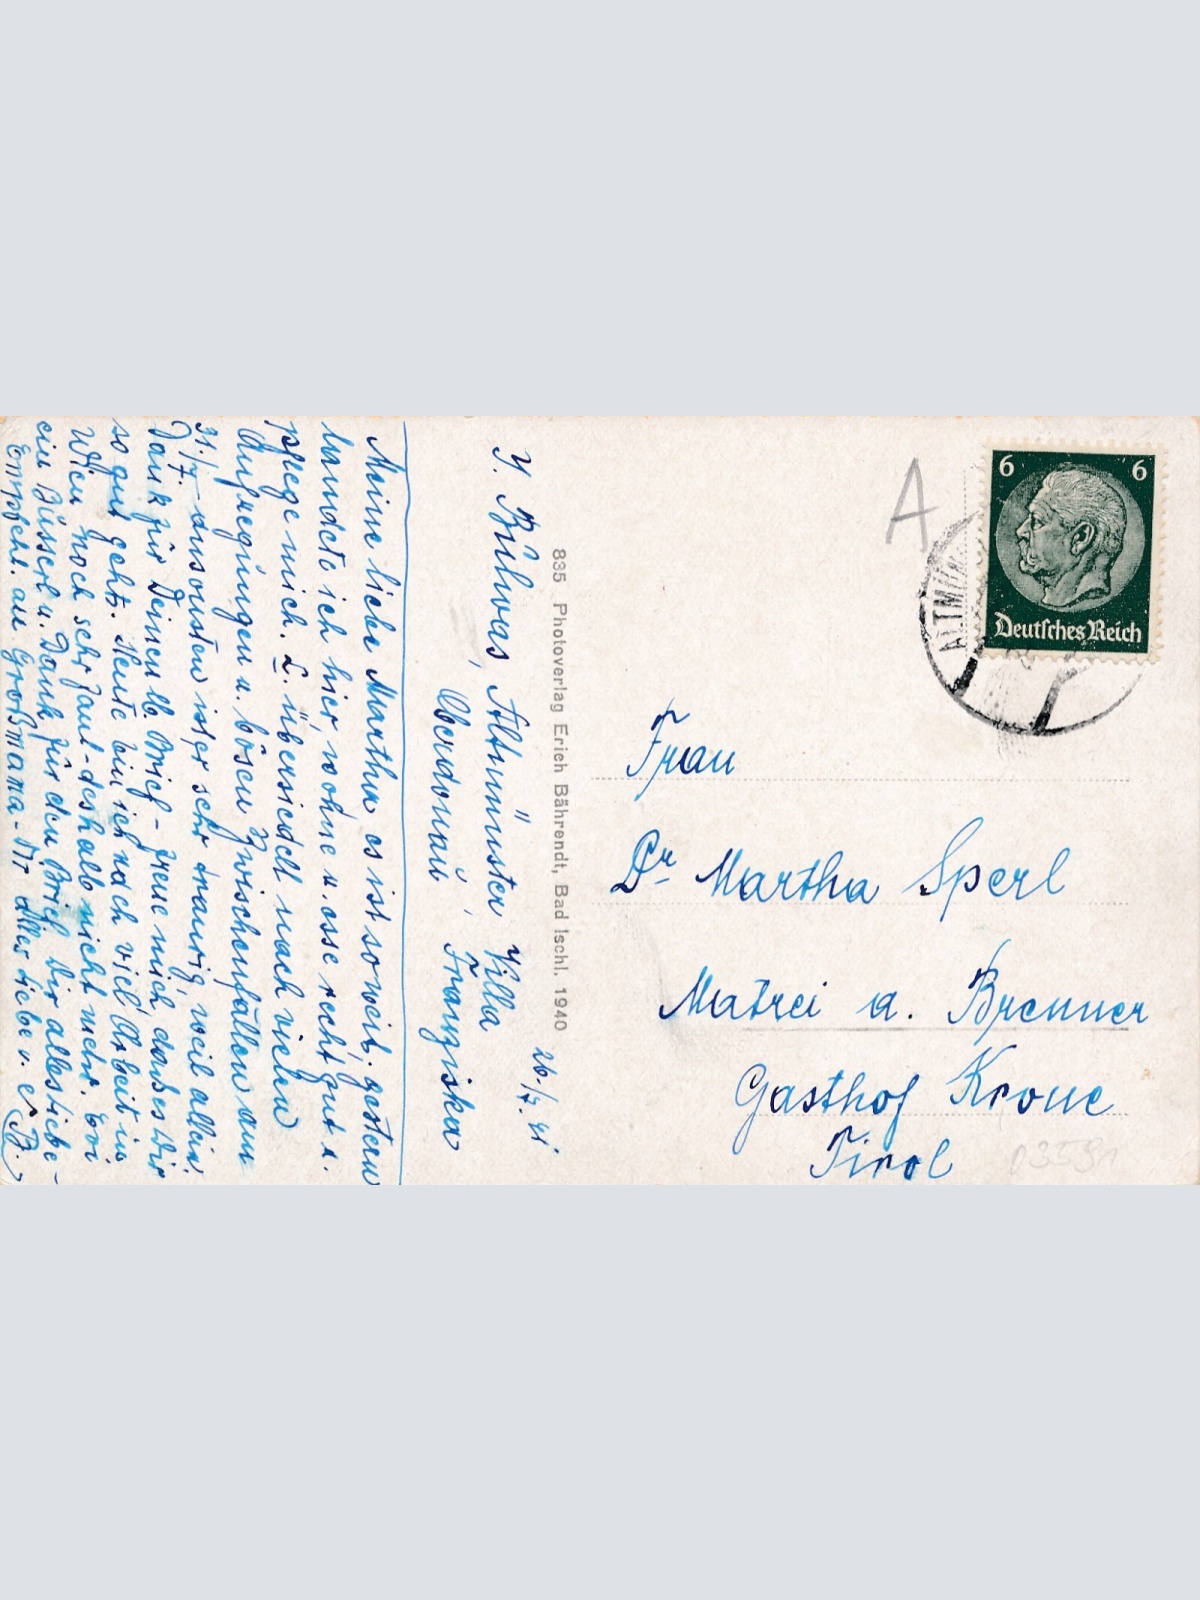 J. Bülwas, Altmünster Villa
Oberdonau, Franziska
26./7. 41
Meine liebe Martha es ist so weit, gestern
landete ich hier, wohne u. esse recht gut u.
pflege mich. L. übersiedelt nach vielen
Aufregungen u. bösen Zwischenfällen am
31./7. ansonsten ist er sehr traurig, weil allein.
Dank für Deinen lb. Brief - freue mich das es Dir
so gut geht. Heute bin ich nach viel Arbeit in
Wien noch sehr faul - deshalb nicht mehr.
ein Busserl u. Dank für den Brief Dir alles liebe -
Empfehl. an Großmama - Dir alles liebe
835 Photoverlag Erich Bährendt, Bad Ischl. 1940
A
6 6
Deutsches Reich
ALTMÜN
Frau
Dr Martha Sperl
Matrei a. Brenner
Gasthof Krone
Tirol
03591